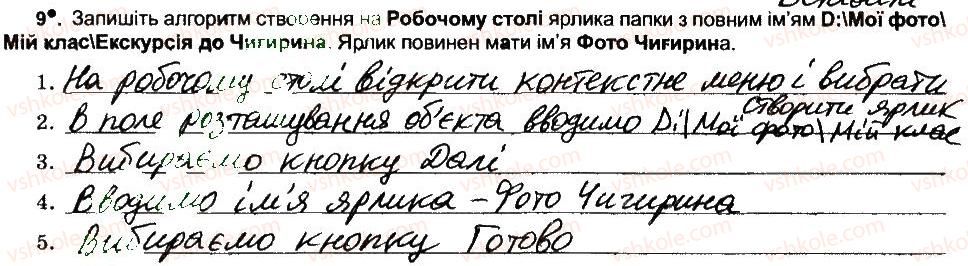 9°. Запишіть алгоритм створення на Робочому столі ярлика папки з повним ім'ям D:\Мої фото\
Мій клас\Екскурсія до Чигирина. Ярлик повинен мати ім'я Фото Чигирина.
1. На робочому столі відкрити контекстне меню і вибрати
створити ярлик
2. В поле розташування об'єкта вводимо D:\Мої фото\Мій клас
3. Вибираємо кнопку Далі
4. Вводимо ім'я ярлика - Фото Чигирина
5. Вибираємо кнопку Готово